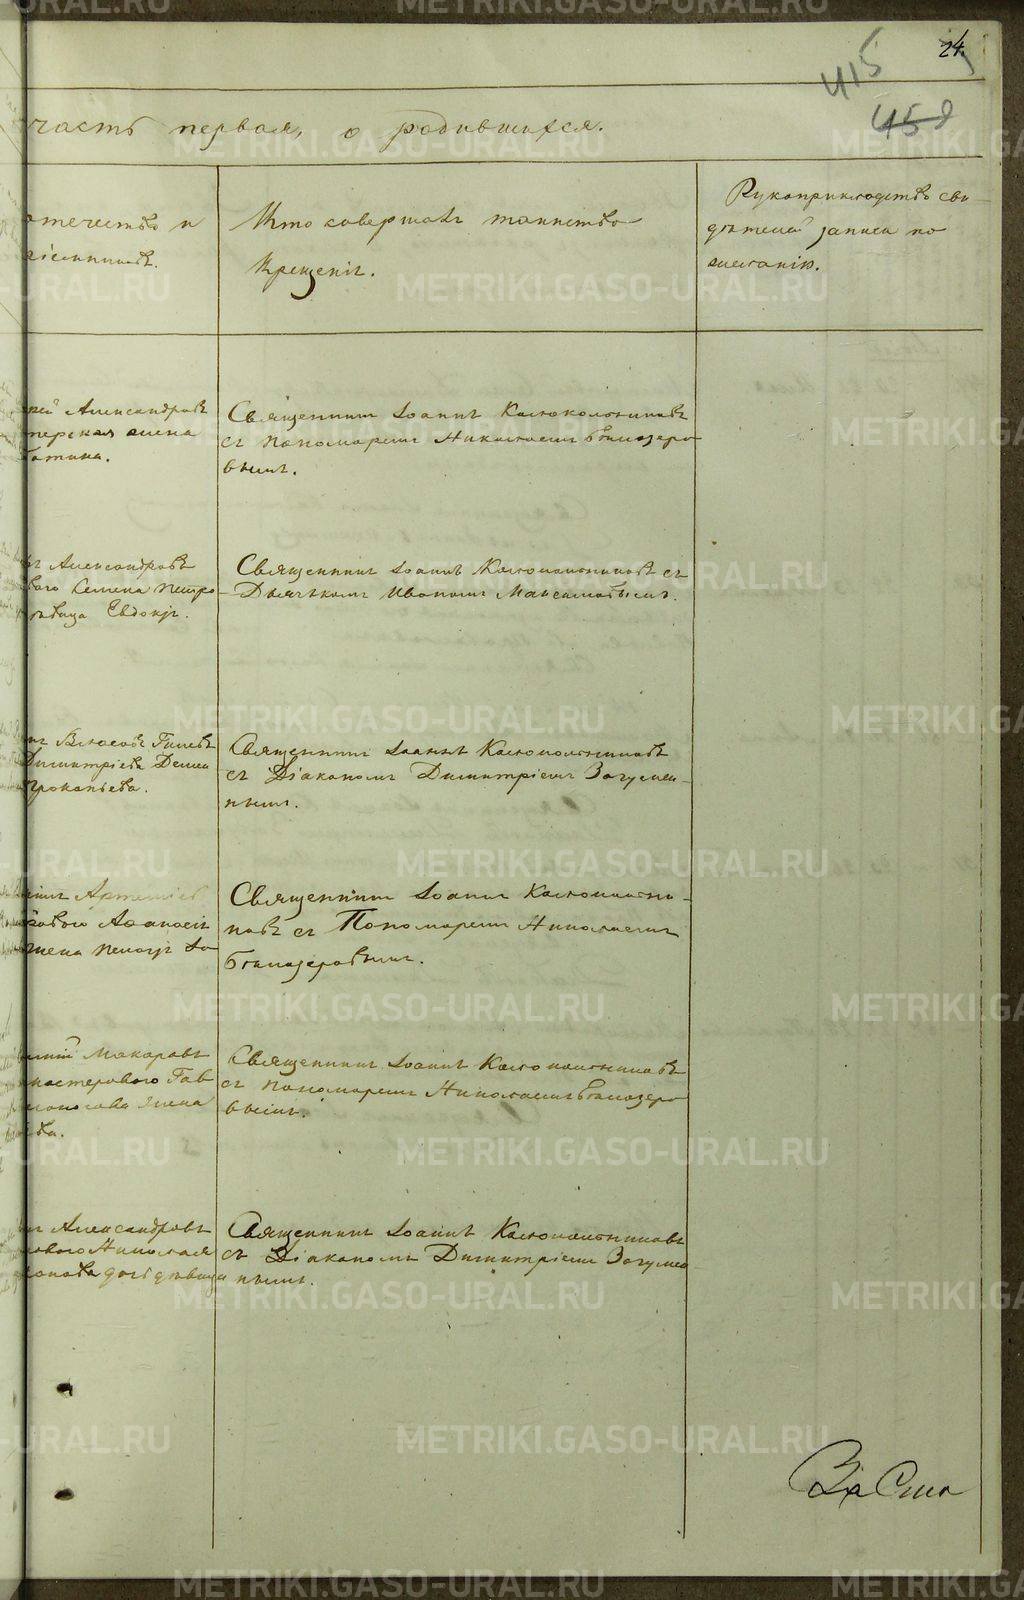 24
415
458
часть первая, о родившихся.
отечество и
Кто совершалъ таинство
Крещенія.
Рукоприкладство сви-
дѣтелей записи по
желанію.
Александровъ
жена
Священникъ Іоаннъ Колокольниковъ
съ пономаремъ Николаемъ Бѣлозеро
вымъ.
Александровъ
Семена Петро
Евдокія.
Священникъ Іоаннъ Колокольниковъ съ
Дьячкомъ Иваномъ Максимовымъ.
Власовъ Гилевъ
Димитріева Деми
Прокопьева.
Священникъ Іоаннъ Колокольниковъ
съ Діакономъ Димитріемъ Загумен-
нымъ.
Артеміевъ
Аѳанасія
жена
Священникъ Іоаннъ Колокольни-
ковъ съ Пономаремъ Николаемъ
Бѣлозеровымъ.
Макаровъ
мастерового Гав
жена
Священникъ Іоаннъ Колокольниковъ
съ пономаремъ Николаемъ Бѣлозеро
вымъ.
Александровъ
Николая
дочь дѣвица
Священникъ Іоаннъ Колокольниковъ
съ Діакономъ Димитріемъ Загумен-
нымъ.
METRIKI.GASO-URAL.RU